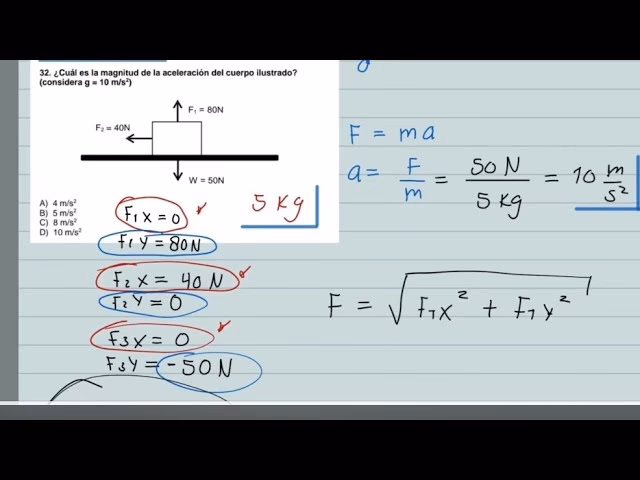 32. ¿Cuál es la magnitud de la aceleración del cuerpo ilustrado?
(considera g = 10 m/s²)
F₁ = 80N
F₂ = 40N
W = 50N
A) 4 m/s²
B) 5 m/s²
C) 8 m/s²
D) 10 m/s²
5 Kg
F₁x = 0
F₁y = 80N
F₂x = 40 N
F₂y = 0
F₃x = 0
F₃y = -50N
F = ma
a = F/m = 50 N / 5 Kg = 10 m/s²
F = √(FₜX² + FₜY²)